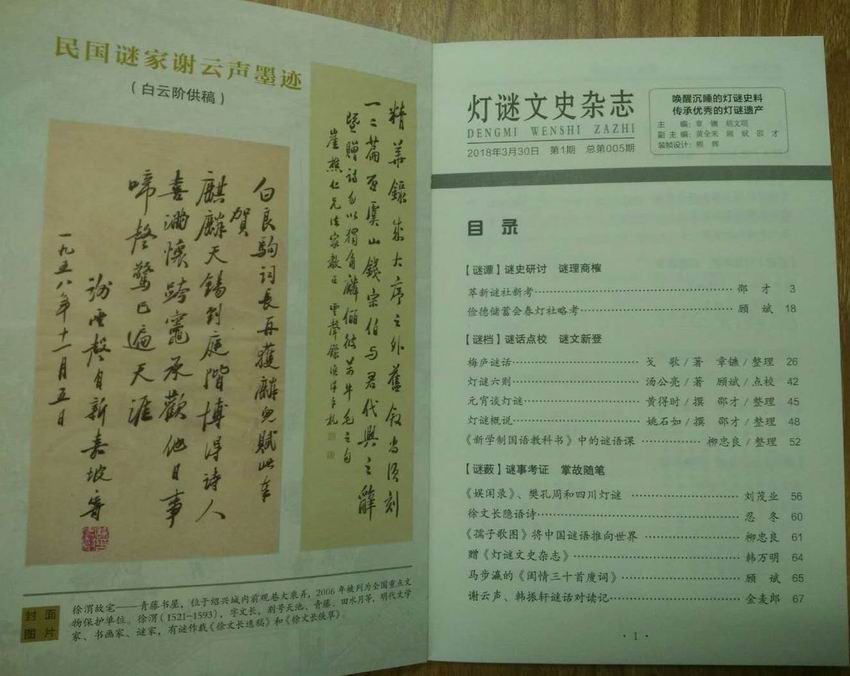 民国谜家谢云声墨迹
（白云阶供稿）
白良驹词长再获麟儿赋此奉
贺
麒麟天锡到庭阶博得诗人
喜满怀跨灶承欢他日事
啼声惊已遍天涯
谢云声自新嘉坡寄
一九五八年十一月五日
封面
图片
徐渭故宅——青藤书屋，位于绍兴城内前观巷大乘弄，2006年被列为全国重点文
物保护单位。徐渭（1521-1593），字文长，别号天池、青藤、田水月等，明代文学
家、书画家、谜家，有谜作载《徐文长逸稿》和《徐文长佚草》。
灯谜文史杂志
DENGMI WENSHI ZAZHI
2018年3月30日 第1期 总第005期
唤醒沉睡的灯谜史料
传承优秀的灯谜遗产
主 编：章 镳 胡文明
副主编：黄全来 顾 斌 邵 才
装帧设计：熊 辉
目 录
【谜谭】谜史研讨 谜理商榷
萃新谜社新考 邵 才 3
俭德储蓄会春灯社略考 顾 斌 18
【谜档】谜话点校 谜文新登
梅庐谜话 戈 歌/著 章镳/整理 26
灯谜六则 汤公亮/著 顾斌/点校 42
元宵谈灯谜 黄得时/撰 邵才/整理 45
灯谜概说 姚石如/撰 邵才/整理 48
《新学制国语教科书》中的谜语课 柳忠良/整理 52
【谜薮】谜事考证 掌故随笔
《娱闲录》、樊孔周和四川灯谜 刘茂业 56
徐文长隐语诗 忍 冬 60
《孺子歌图》将中国谜语推向世界 柳忠良 61
赠《灯谜文史杂志》 韩万明 64
马步瀛的《闺情三十首廋词》 顾 斌 65
谢云声、韩振轩谜话对读记 金麦郎 67
· 1 ·